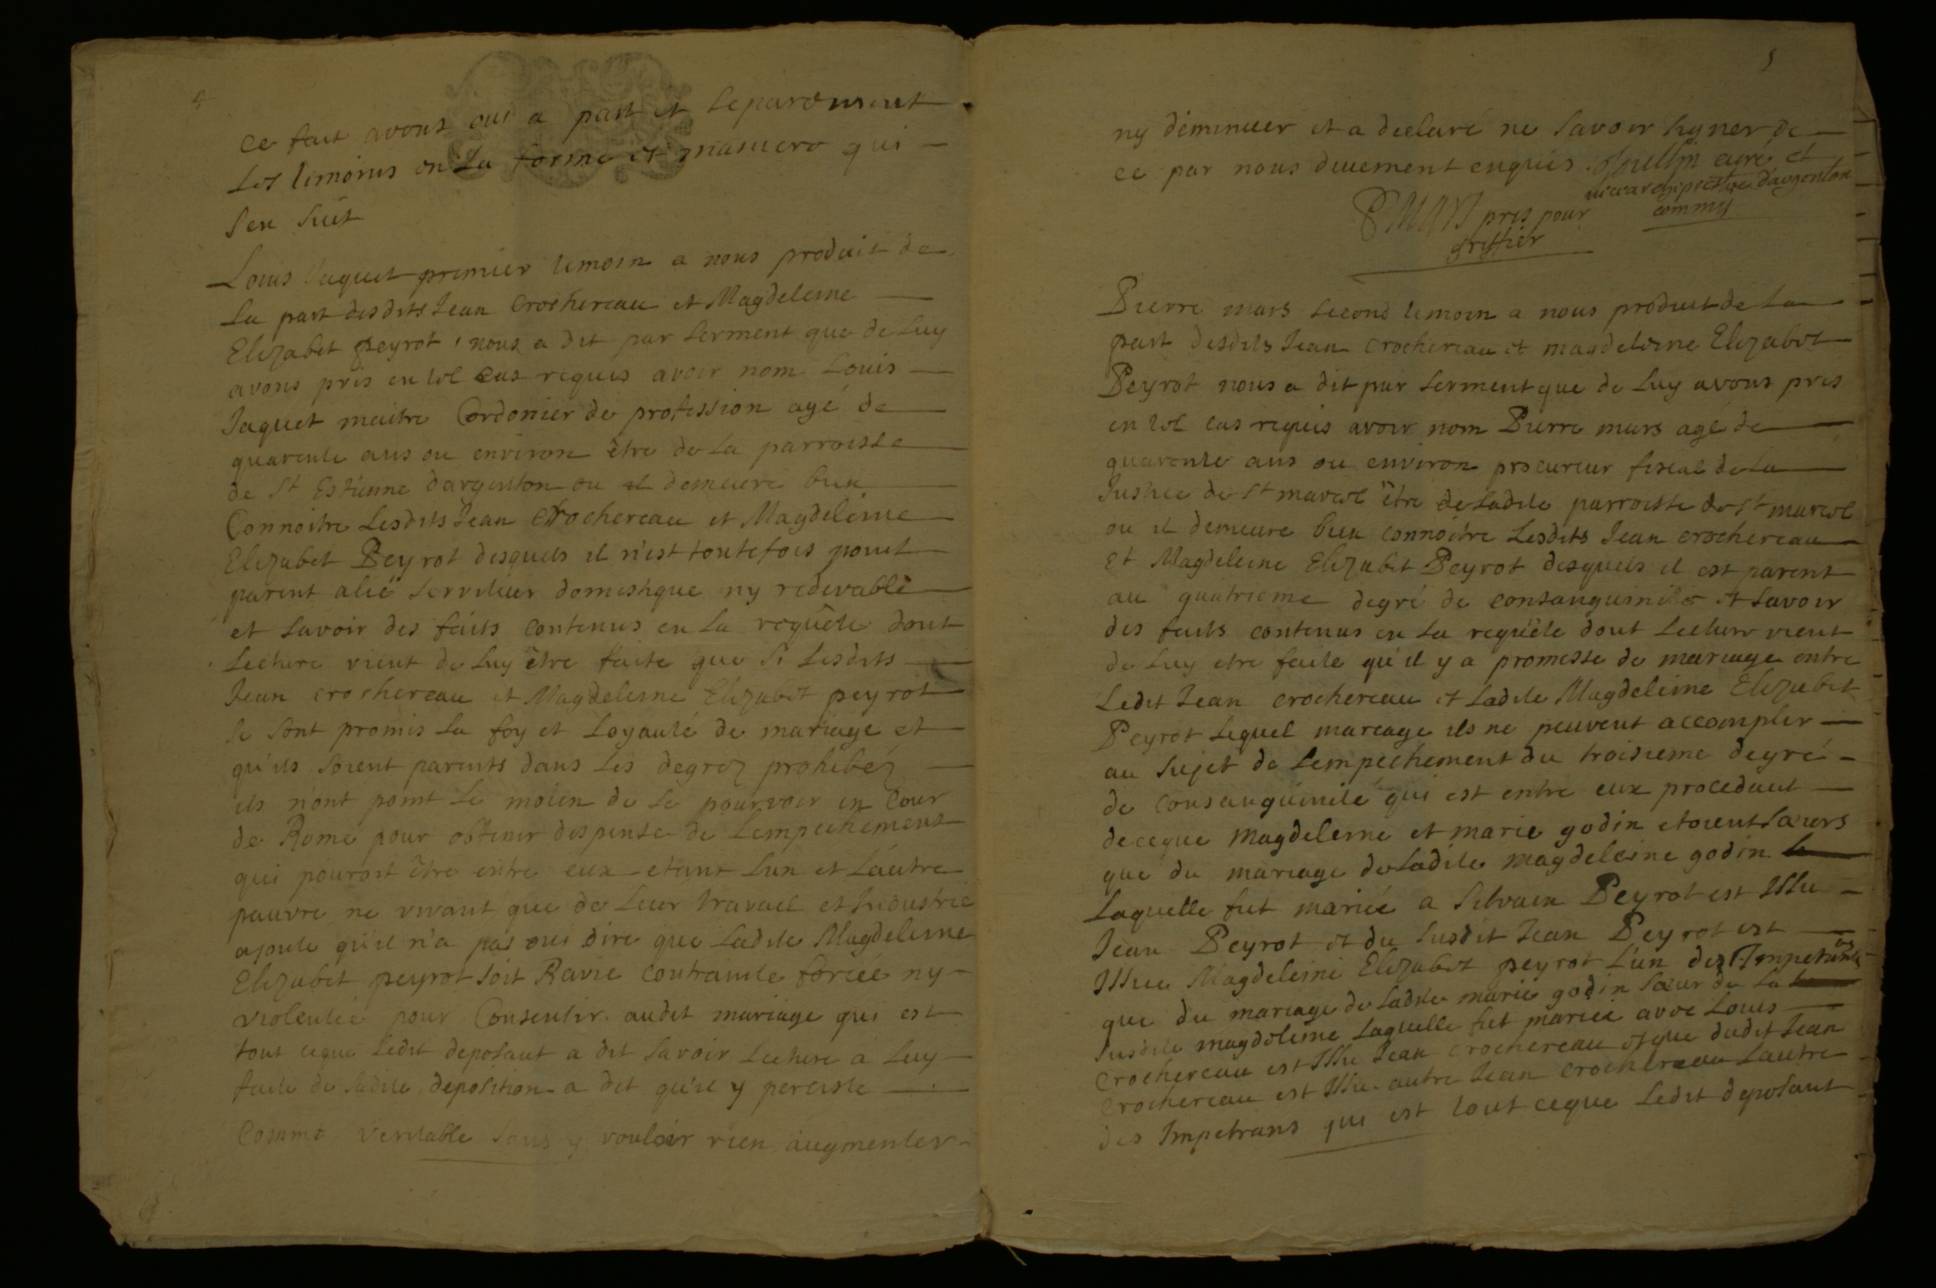 4
ce fait avons oui a part et separement
les temoins en la forme et maniere qui
sen suit
Louis Jaquet premier temoin a nous produit de
la part desdits Jean Crochereau et Magdeleine
Elizabet peyrot, nous a dit par serment que de luy
avons pris en tel cas requis avoir nom Louis
Jaquet maitre Cordonier de profession agé de
quarente ans ou environ être de la parroisse
de St Estienne dargenton ou il demeure bien
Connoitre Lesdits Jean Crochereau et Magdeleine
Elizabet Peyrot desquels il n'est toutefois point
parent alié serviteur domestique ny redevable
et savoir des faits contenus en la requête dont
Lecture vient de luy être faite que si Lesdits
Jean crochereau et Magdeleine Elizabet peyrot
se sont promis la foy et Loyauté de mariage et
qu'ils soient parents dans les degrez prohibéz
ils n'ont point le moien de se pourvoir en Cour
de Rome pour obtenir dispense de Lempechement
qui pouroit être entre eux etant Lun et Lautre
pauvre ne vivant que de Leur travail et Industrie
ajoute qu'il n'a pas oui dire que Ladite Magdeleine
Elizabet peyrot soit Ravie contrainte forcée ny
violentée pour Consentir audit mariage qui est
tout ceque Ledit deposant a dit savoir Lecture a Luy
faite de sadite deposition a dit qu'il y perciste
Comme veritable sans y vouloir rien augmenter
5
ny déminuer et a declaré ne savoir signer de
ce par nous duement enquis. curé et
vice archiprestre dargenton
commis
pris pour
Greffier
Pierre mars second temoin a nous produit de la
part desdits Jean crochereau et magdeleine Elizabet
Peyrot nous a dit par serment que de luy avons pris
en tel cas requis avoir nom Pierre mars agé de
quarente ans ou environ procureur fiscal de la
Justice de St marcel être de ladite parroisse de St marcel
ou il demeure bien connoitre Lesdits Jean crochereau
et Magdeleine Elizabet Peyrot desquels il est parent
au quatrieme degré de consanguinité et savoir
des faits contenus en la requête dont Lecture vient
de luy etre faite qu'il y a promesse de mariage entre
Ledit Jean crochereau et Ladite Magdeleine Elizabet
Peyrot Lequel mariage ils ne peuvent accomplir
au sujet de Lempechement du troisieme degré
de consanguinité qui est entre eux procedant
deceque Magdeleine et marie godin etoient sœurs
que du mariage de Ladite magdeleine godin
Laquelle fut mariée a Silvain Peyrot est Issu
Jean Peyrot et du susdit Jean Peyrot est
Issue Magdeleine Elizabet peyrot L'un des Impetrans
que du mariage de Ladite marie godin sœur de La
susdite magdeleine Laquelle fut mariée avec Louis
Crochereau est Issu Jean crochereau et que dudit Jean
Crochereau est Issu autre Jean crochereau Lautre
des Impetrans qui est tout ceque Ledit deposant